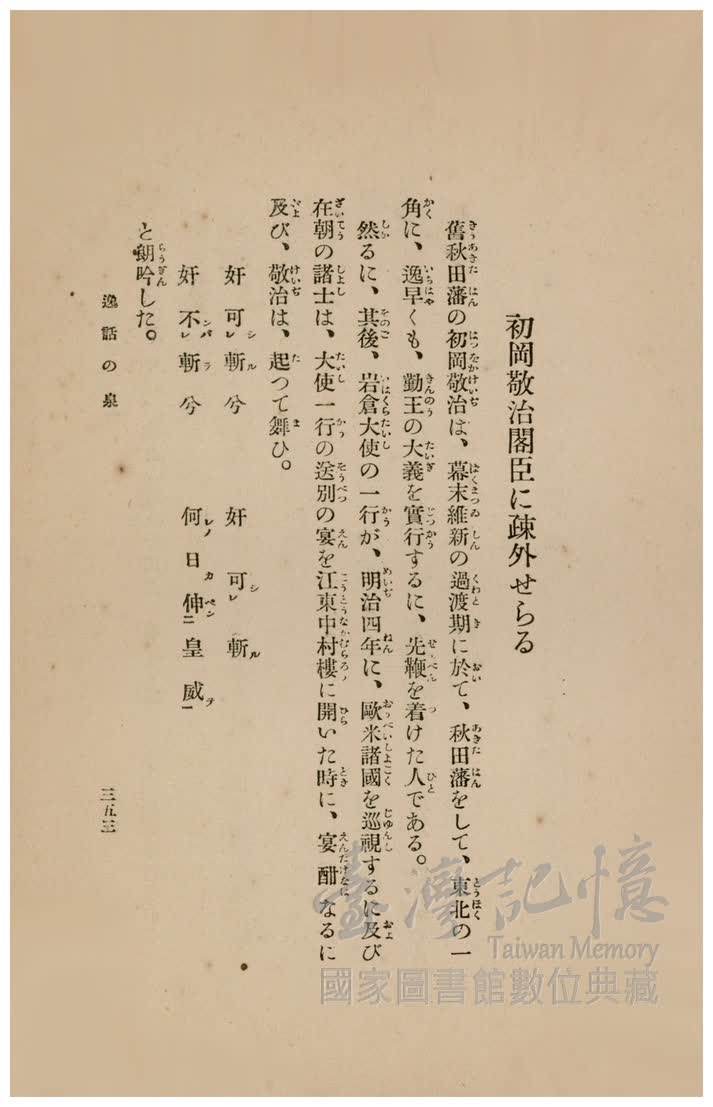 初岡敬治閣臣に疎外せらる
舊秋田藩の初岡敬治は、幕末維新の過渡期に於て、秋田藩をして、東北の一
角に、逸早くも、勤王の大義を實行するに、先鞭を着けた人である。
然るに、其後、岩倉大使の一行が、明治四年に、歐米諸國を巡視するに及び
在朝の諸士は、大使一行の送別の宴を江東中村樓に開いた時に、宴酣なるに
及び、敬治は、起つて舞ひ。
奸可レ斬兮 奸可レ斬
奸不レ斬兮 何日伸二皇威一
と朗吟した。
逸話の泉
三五三
臺灣記憶
Taiwan Memory
國家圖書館數位典藏